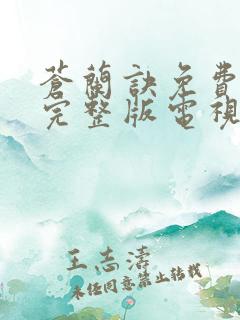 蒼蘭訣免費
完整版電視
王志濤
未经同意禁止转载